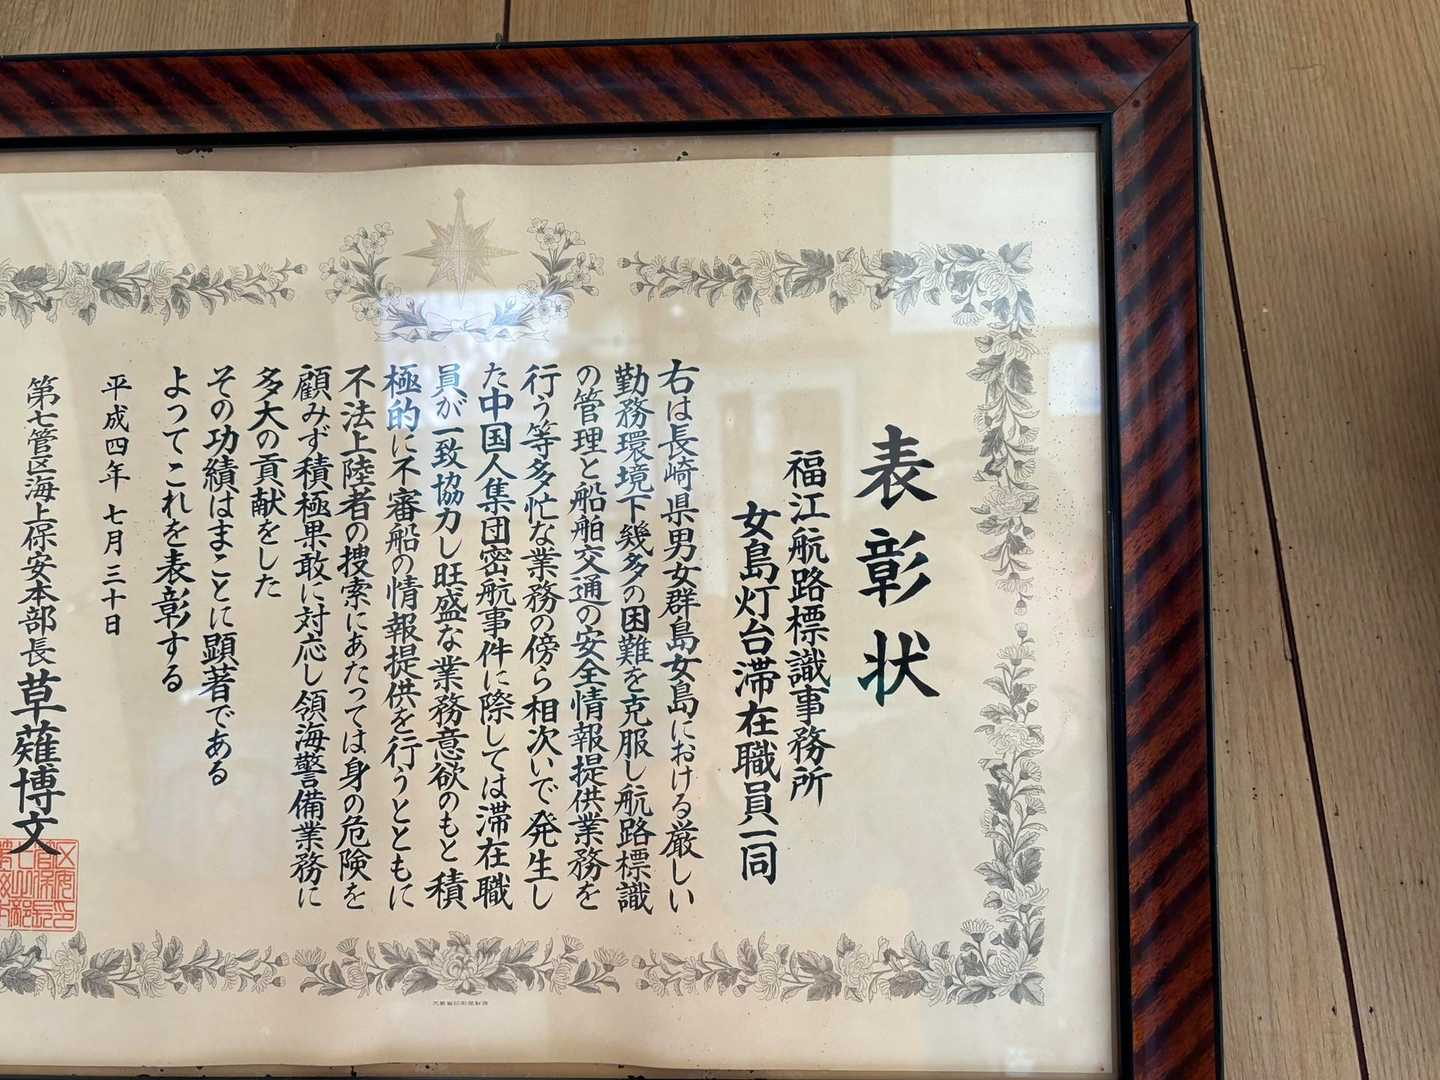 表彰状
福江航路標識事務所
女島灯台滞在職員一同
右は長崎県男女群島女島における厳しい
勤務環境下幾多の困難を克服し航路標識
の管理と船舶交通の安全情報提供業務を
行う等多忙な業務の傍ら相次いで発生し
た中国人集団密航事件に際しては滞在職
員が一致協力し旺盛な業務意欲のもと積
極的に不審船の情報提供を行うとともに
不法上陸者の捜索にあたっては身の危険を
顧みず積極果敢に対応し領海警備業務に
多大の貢献をした
その功績はまことに顕著である
よってこれを表彰する
平成四年七月三十日
第七管区海上保安本部長 草薙博文